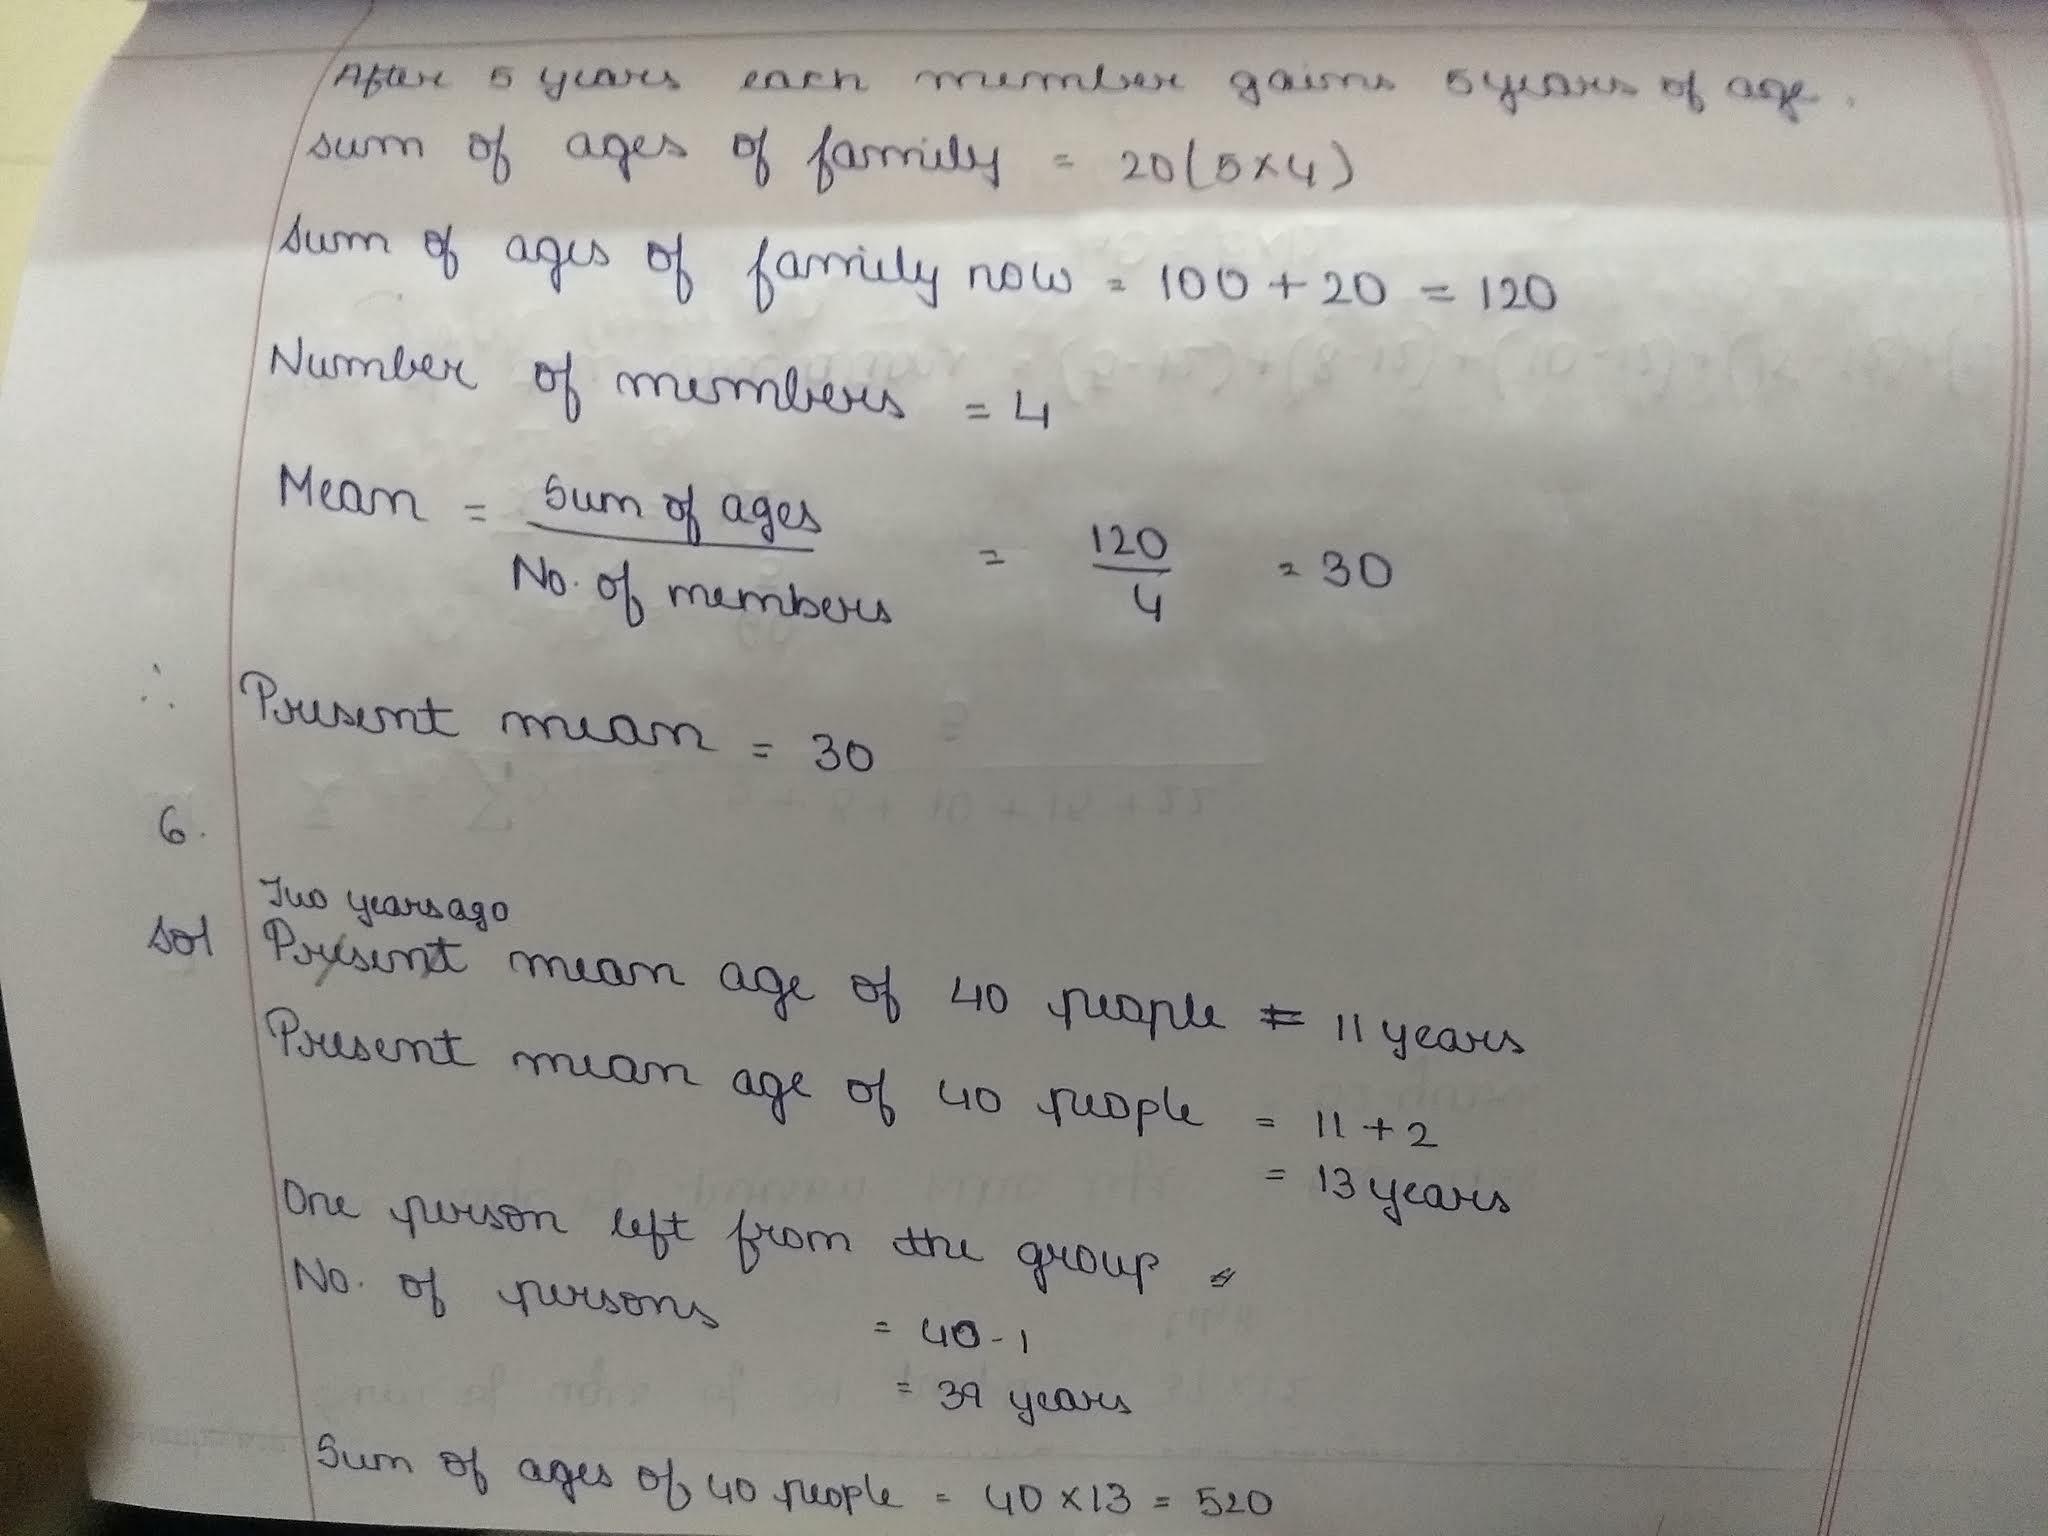 After 5 years each member gains 5 years of age.
Sum of ages of family = 20(5×4)
Sum of ages of family now = 100 + 20 = 120
Number of members = 4
Mean = Sum of ages / No. of members = 120/4 = 30
∴ Present mean = 30
6.
Two years ago
Sol Present mean age of 40 people = 11 years
Present mean age of 40 people = 11 + 2
= 13 years
One person left from the group
No. of persons = 40 - 1
= 39 years
Sum of ages of 40 people = 40 × 13 = 520